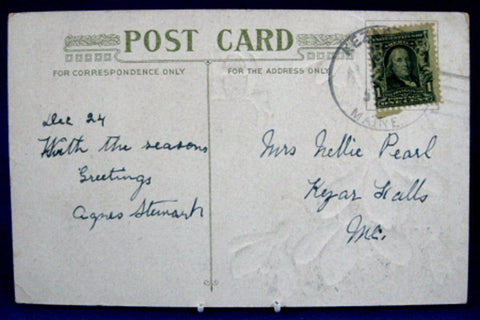 POST CARD
FOR CORRESPONDENCE ONLY
FOR THE ADDRESS ONLY
Dec 24
With the seasons
Greetings
Agnes Stewart
Mrs Nellie Pearl
Kezar Falls
Me.
KEZ
MAINE
1